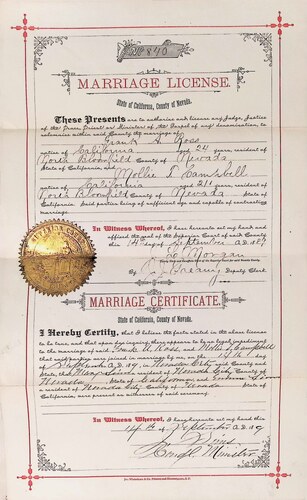 840
MARRIAGE LICENSE.
State of California, County of Nevada.
These Presents are to authorize and license any Judge, Justice
of the Peace, Priest or Minister of the Gospel of any denomination, to
solemnize within said County the marriage of
Frank A. Ross
native of California aged 24 years, resident of
North Bloomfield County of Nevada
State of California, and Mollie T. Campbell
native of California aged 21 years, resident of
North Bloomfield County of Nevada State of
California. Said parties being of sufficient age and capable of contracting
marriage.
In Witness Whereof, I have hereunto set my hand and
affixed the seal of the Superior Court of said County
this 14th September A.D. 18
Morgan
By Deputy Clerk.
MARRIAGE CERTIFICATE.
State of California, County of Nevada.
I Hereby Certify, that I believe the facts stated in the above license
to be true, and that upon due inquiry, there appears to be no legal impediment
to the marriage of said Frank A. Ross, and Mollie T. Campbell
that said parties were joined in marriage by me, on the 14th day
of September A.D. in Nevada City of said County and
State, that a resident of Nevada City County of
Nevada, State of California and
a resident of Nevada City County of Nevada State of
California, were present as witnesses of said ceremony.
In Witness Whereof, I have hereunto set my hand this
14th of September A.D.
Sims
Minister